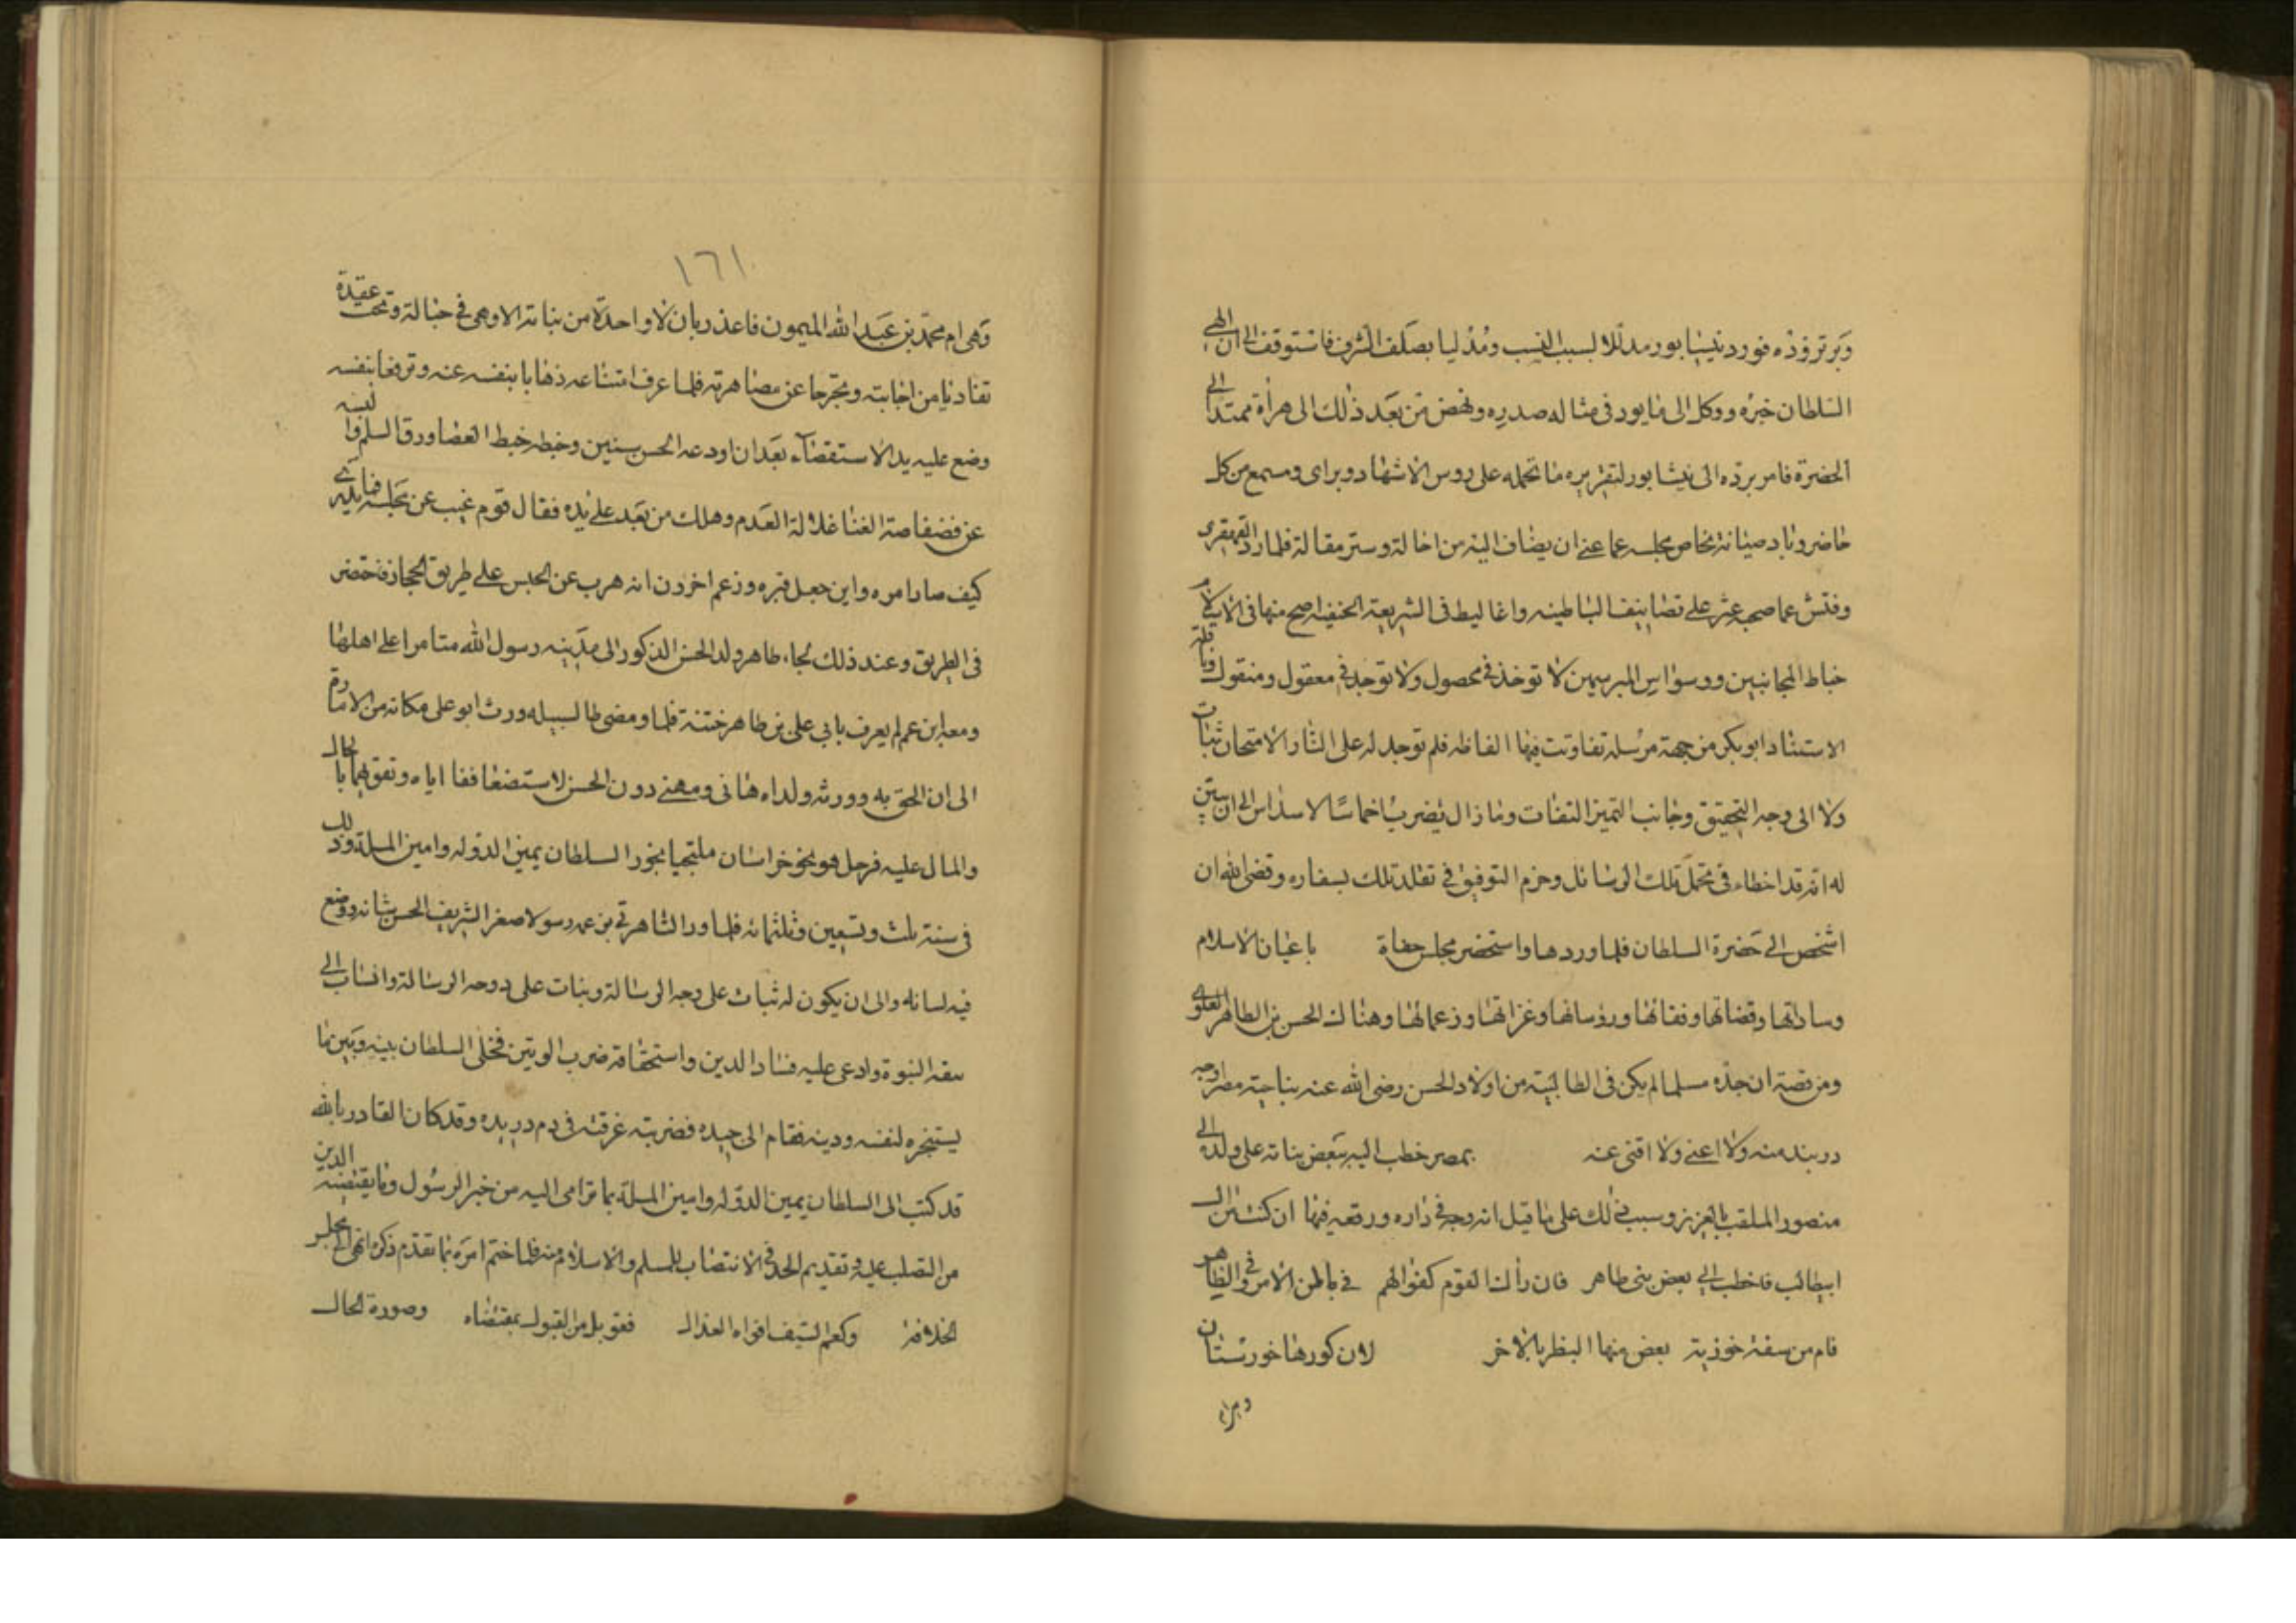 وبرتزوذه فورد نيسابور مدللا لسبب النسب ومدليا بصلف الشرف فاستوقف الى ان انهى
السلطان خبره ووكل الى مايود فى مثاله صدره ونهض من بعد ذلك الى هراة ممتدا الى
الحضرة فامر برده الى نيشابور لتقريره ما تحمله على روس الاشهاد وبراى ومسمع من كل
حاضر وباد صيانة لخاص مجلسه عما عنى ان يضاف اليه من احالة وستر مقالة فلما رد القهقرى
وفتش عما صحبه عثر على تصانيف الباطنيه واغاليط فى الشريعة الحنيفة اصح منها فى الاسلام
خباط المجانين ووسواس المبرسمين لا توخذ فى محصول ولا توجد فى معقول ومنقول وفاتحة
الاستاد ابو بكر من جهة مرسله تفاوتت فيها الفاظه فلم توجد له على الثار الامتحان ثبات
ولا الى وجه التحقيق وجانب التميز التفات وما زال يضرب اخماسا لاسداس الى ان تبين
له انه قد اخطاء فى تحمل تلك الرسائل وحرم التوفيق فى تقلد تلك بسفاره وقضى الله ان
اشخص الى حضرة السلطان فلما وردها واستحضر مجلس حفاة باعيان الاسلام
وساداتها وقضاتها وفقائها ورؤسائها وغزاتها وزعمائها وهناك الحسن بن الطاهر العلوى
ومن قصته ان جده مسلما لم يكن فى الطالبية من اولاد الحسن رضى الله عنه بناحية مصر اوجه
دربند منه ولا اعنى ولا اقنى عنه بمصر خطب اليه بعض بناته على ولده الى
منصور الملقب بالعزيز وسبب ذلك على ما قيل انه وجد فى داره ورقعه فيها ان كنت من ال
ابيطالب فاخطب الى بعض بنى طاهر فان رأك القوم كفوا لهم فى باطن الامر وفى الظاهر
قام من سفة خوزية بعض منها البظر بالاخر لان كورها خورستان
وبراه
١٦١
وهى ام محمد بن عبد الله الميمون فاعذر بان لا واحدة من بناته الا وهى فى حبالة وتحت عقيدة
تفاديا من اجابته وتحرجا عن مصاهرته فلما عرف امتناعه ذهابا بنفسه عنه وترفعا بنفسه
وضع عليه يد الاستقضاء بعد ان اودعه الحبس سنين وخبطه خبط العضا ورق السلم والبسه
عن فضفاضة الغنا غلالة العدم وهلك من بعد على يده فقال قوم غيب عن مجلسه فما يدرى
كيف صار امره واين جعل قبره وزعم اخرون انه هرب عن الحبس على طريق الحجاز فتحضر
فى الطريق وعند ذلك لجا، طاهر ولد الحسن المذكور الى مدينه رسول الله متامرا على اهلها
ومعه ابن عم له يعرف بابى على بن طاهر ختنه فلما ومضى طا لسبيله ورث ابو على مكانه من الامارة
الى ان الحق به وورثه ولداه هانى ومهنى دون الحسن لاستضعاففا اياه وتفوقهما بالحال
والمال عليه فرحل هو نحو خراسان ملتجيا نجور السلطان يمين الدوله وامين الملة وذلك
فى سنة ثلث وتسعين وثلثمائه فلما ورد التاهرتى بن عمه رسولا صغر الشريف الحسن شانه ووضع
فيه لسانه والى ان يكون له ثبات على وجه الرسالة وبنات على دوحه الرسالة وانساب الى
بقعة النبوة وادعى عليه فساد الدين واستحقاقه ضرب الوتين فخلى السلطان بينه وبين ما
يستنجزه لنفسه ودينه فقام الى جيده فضربته غرقته فى دم دريده وقد كان القادر بالله
قد كتب الى السلطان يمين الدوله وامين الملة بما ترامى اليه من خبر الرسول وما يقتضيه الدين
من التصلب عليه وتقديم الحد فى الانتصاب للمسلم والاسلام منه فلما ختم امره بما تقدم ذكره انهى الى مجلس
الخلافة وكعم السيف افواه العذال فقوبل من القبول بمقتضاه وصورة الحال